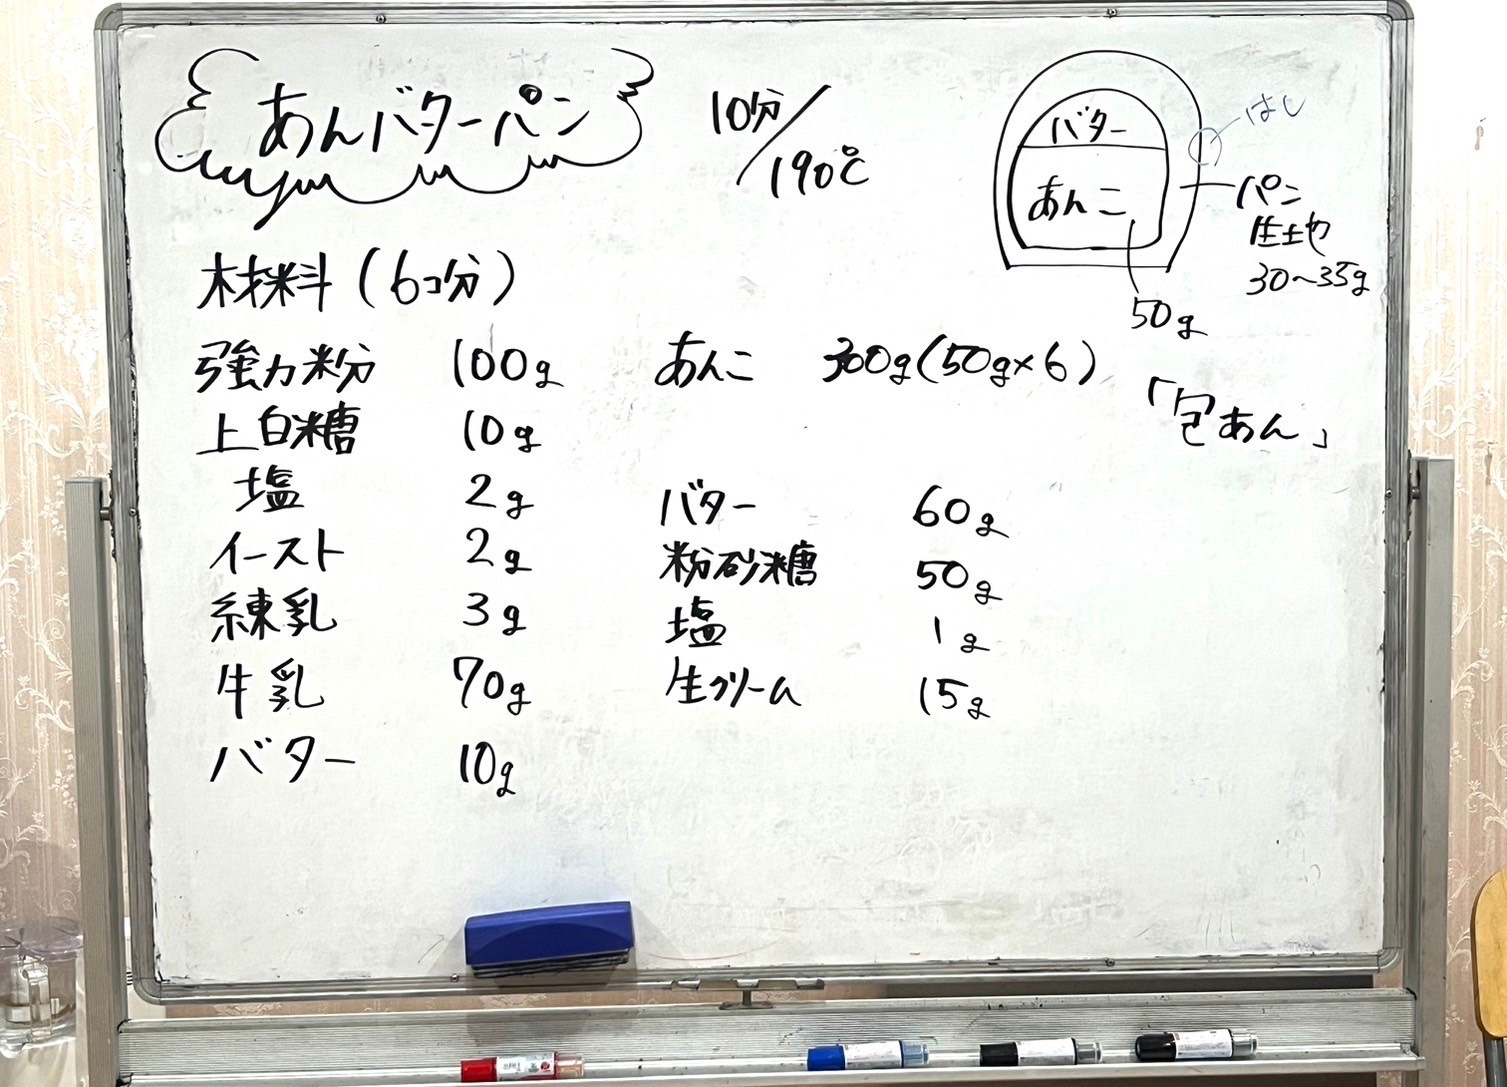 あんバターパン
10分/190℃
材料(6コ分)
強力粉 100g
上白糖 10g
塩 2g
イースト 2g
練乳 3g
牛乳 70g
バター 10g
あんこ 300g(50g×6)
バター 60g
粉砂糖 50g
塩 1g
生クリーム 15g
バター
あんこ
はし
パン
生地
30〜35g
50g
「包あん」